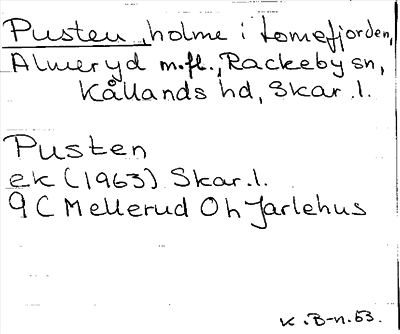 Pusten, holme i Lomefjorden,
Almeryd m.fl., Rackeby sn,
Kållands hd, Skar.l.
Pusten
ek (1963) Skar.l.
9C Mellerud Oh Jarlehus
K.B-n.53.